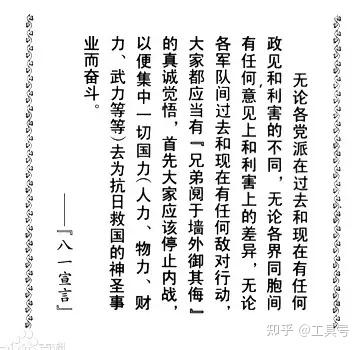 无论各党派在过去和现在有任何
政见和利害的不同，无论各界同胞间
有任何意见上和利害上的差异，无论
各军队间过去和现在有任何敌对行动，
大家都应当有『兄弟阋于墙外御其侮』
的真诚觉悟，首先大家应该停止内战，
以便集中一切国力(人力、物力、财
力、武力等等)去为抗日救国的神圣事
业而奋斗。
——『八一宣言』
知乎 @工具号